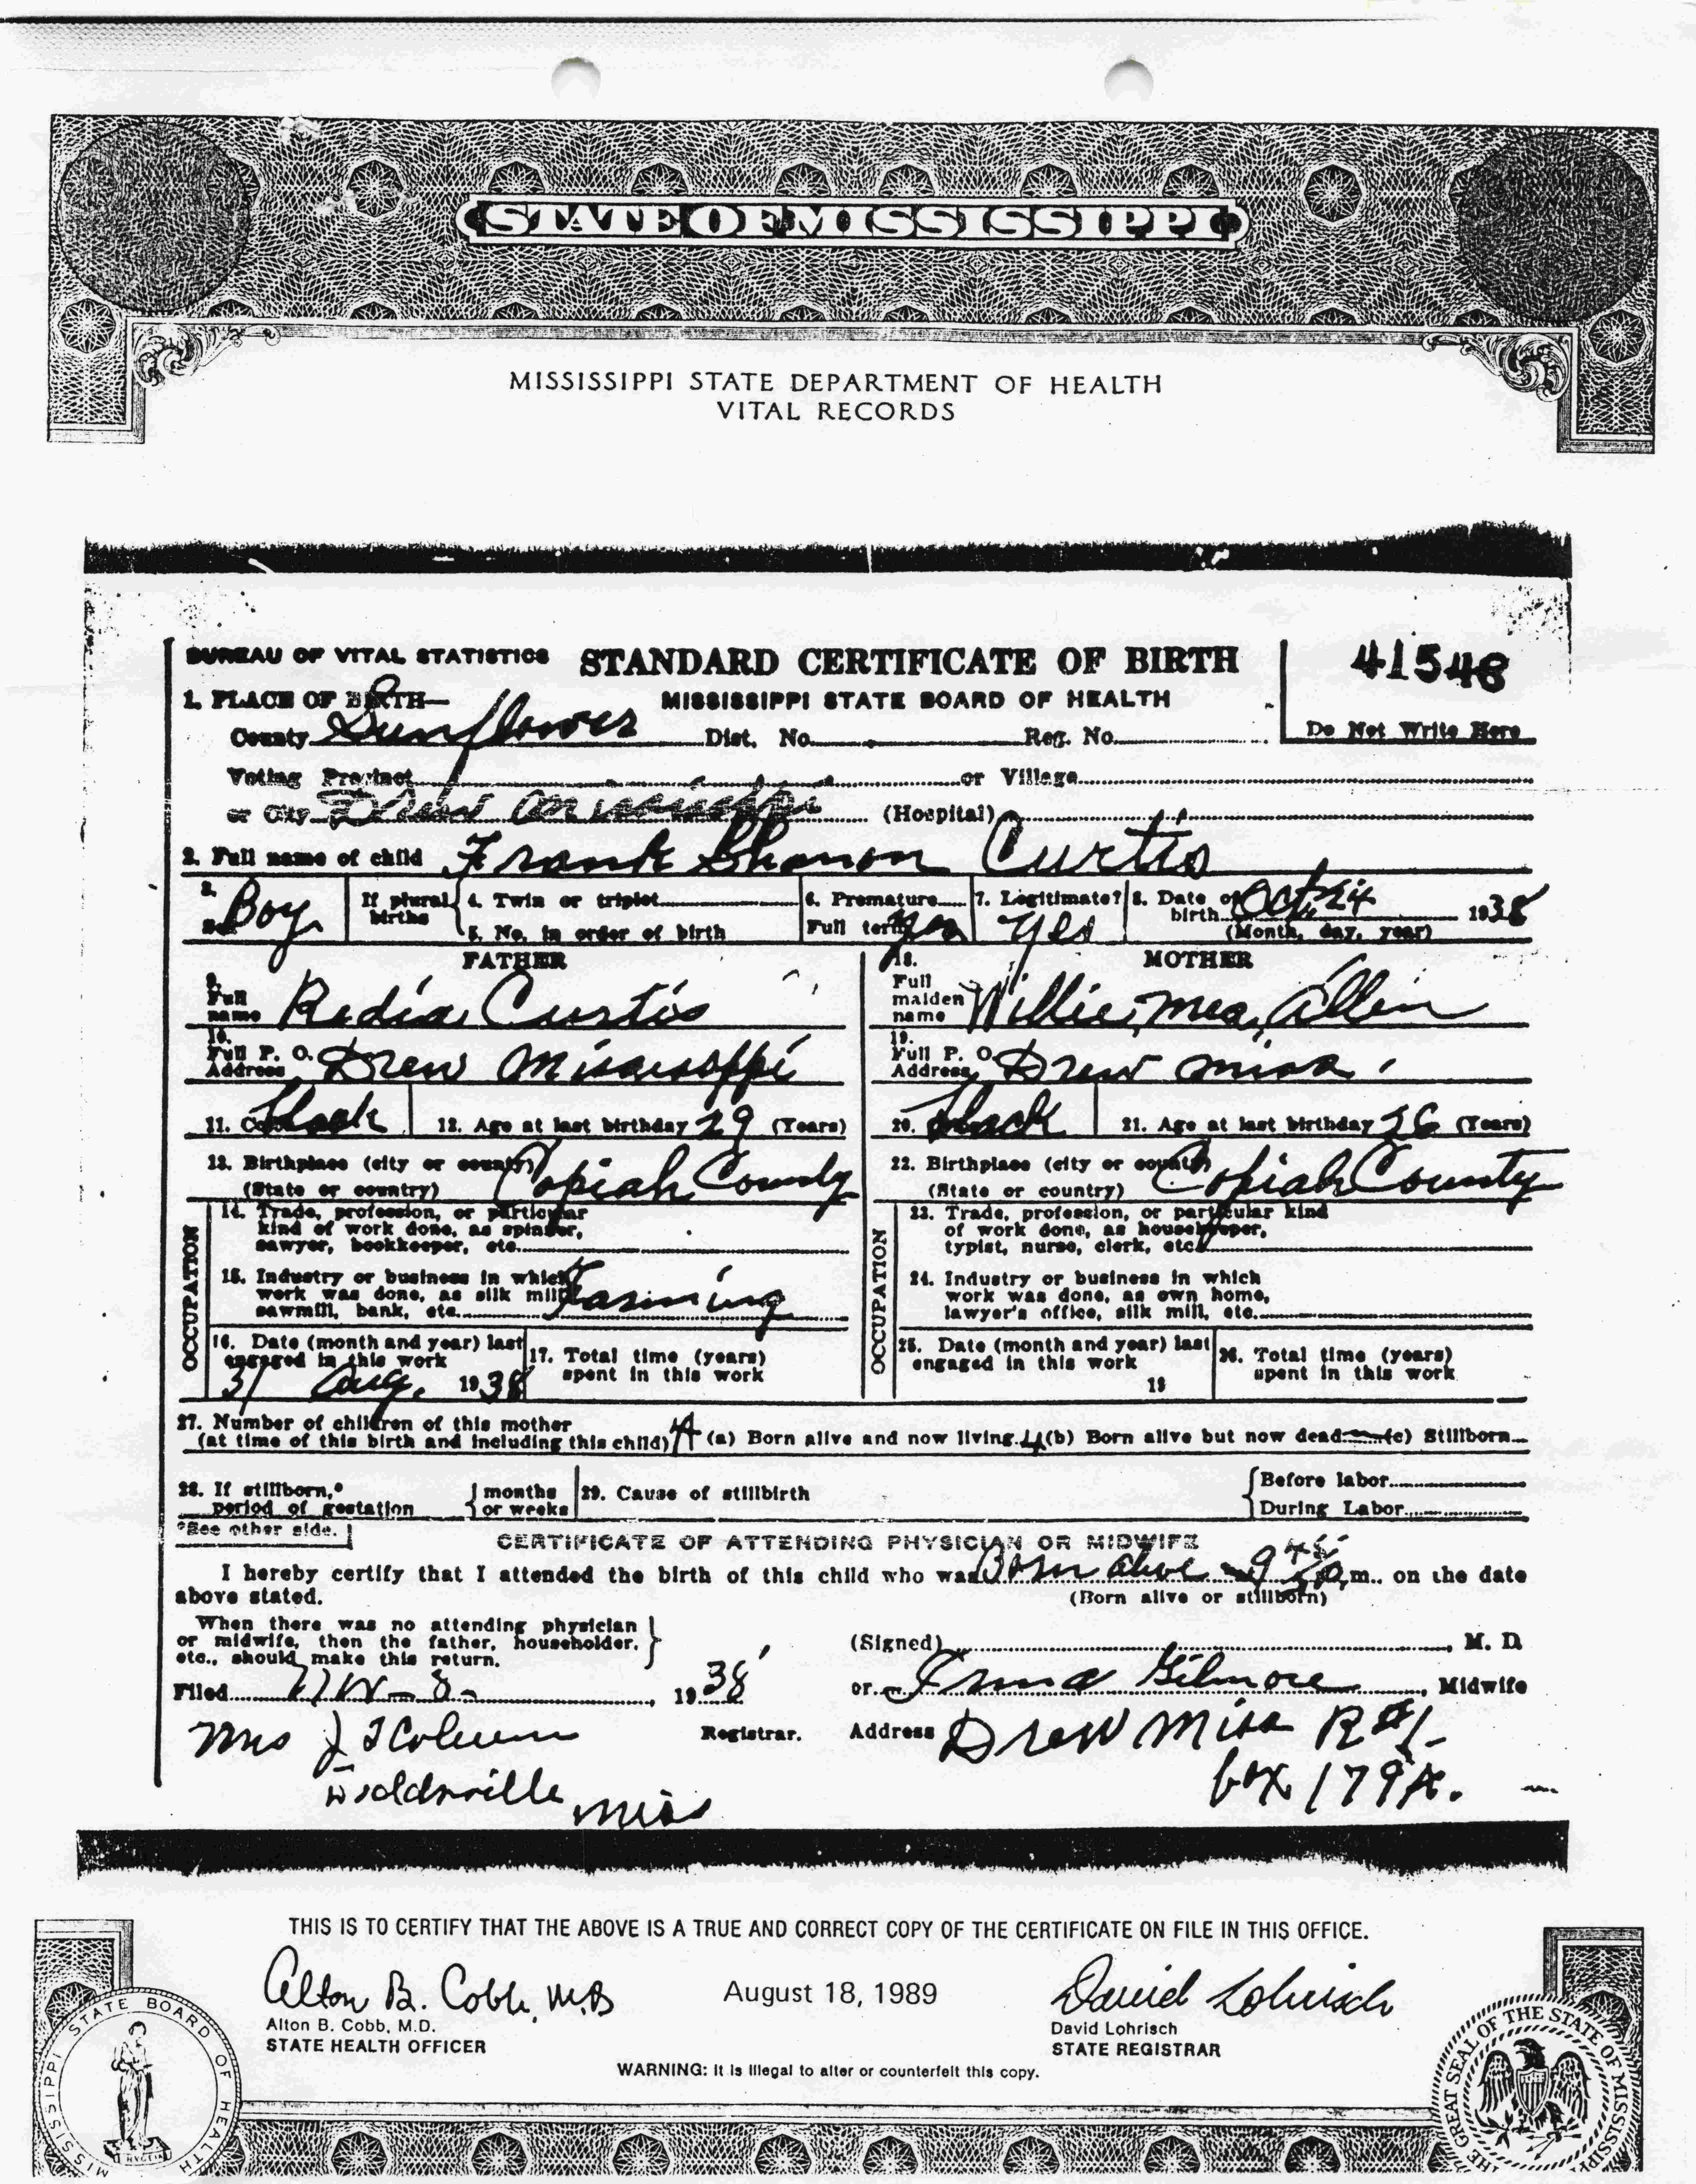 STATE OF MISSISSIPPI
MISSISSIPPI STATE DEPARTMENT OF HEALTH
VITAL RECORDS
BUREAU OF VITAL STATISTICS STANDARD CERTIFICATE OF BIRTH 41548
1. PLACE OF BIRTH— MISSISSIPPI STATE BOARD OF HEALTH
County Sunflower Dist. No. Reg. No. Do Not Write Here
Voting Precinct or Village
or City Drew Mississippi (Hospital)
2. Full name of child Frank Shanon Curtis
3. Sex Boy If plural births 4. Twin or triplet 5. No. in order of birth 6. Premature Full term yes 7. Legitimate? yes 8. Date of birth Oct, 24 1938
(Month, day, year)
FATHER
9. Full name Redia Curtis
10. Full P. O. Address Drew Mississippi
11. black 12. Age at last birthday 29 (Years)
13. Birthplace (city or county) Copiah County
(State or country)
OCCUPATION
14. Trade, profession, or particular
kind of work done, as spinner,
sawyer, bookkeeper, etc.
15. Industry or business in which
work was done, as silk mill, Farming
sawmill, bank, etc.
16. Date (month and year) last
engaged in this work
31 Aug. 1938
17. Total time (years)
spent in this work
MOTHER
18. Full maiden name Willie, Mea, Allen
19. Full P. O. Address Drew Miss.
20. black 21. Age at last birthday 26 (Years)
22. Birthplace (city or county) Copiah County
(State or country)
OCCUPATION
23. Trade, profession, or particular kind
of work done, as housekeeper,
typist, nurse, clerk, etc.
24. Industry or business in which
work was done, as own home,
lawyer's office, silk mill, etc.
25. Date (month and year) last
engaged in this work
19
26. Total time (years)
spent in this work
27. Number of children of this mother
(at time of this birth and including this child) 4 (a) Born alive and now living 4 (b) Born alive but now dead (c) Stillborn
28. If stillborn,* period of gestation months or weeks 29. Cause of stillbirth Before labor During Labor
*See other side.
CERTIFICATE OF ATTENDING PHYSICIAN OR MIDWIFE
I hereby certify that I attended the birth of this child who was Born alive 9 45 m., on the date
above stated. (Born alive or stillborn)
When there was no attending physician
or midwife, then the father, householder,
etc., should make this return.
(Signed) M. D.
Filed 1938 or Irma Gilmore, Midwife
Mrs J Registrar. Address Drew Miss R#1
Miss box 179A.
THIS IS TO CERTIFY THAT THE ABOVE IS A TRUE AND CORRECT COPY OF THE CERTIFICATE ON FILE IN THIS OFFICE.
Alton B. Cobb, M.D. August 18, 1989 David Lohrisch
Alton B. Cobb, M.D. David Lohrisch
STATE HEALTH OFFICER STATE REGISTRAR
WARNING: It is illegal to alter or counterfeit this copy.
MISSISSIPPI STATE BOARD OF HEALTH
HYGEIA
THE GREAT SEAL OF THE STATE OF MISSISSIPPI